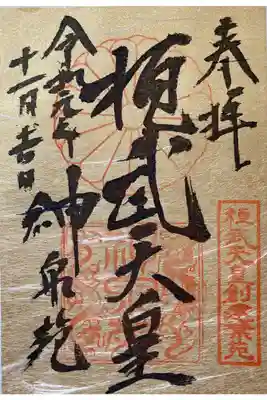 奉拝
桓武天皇創建禁苑
桓武天皇
令和元年
十一月吉日
神泉苑